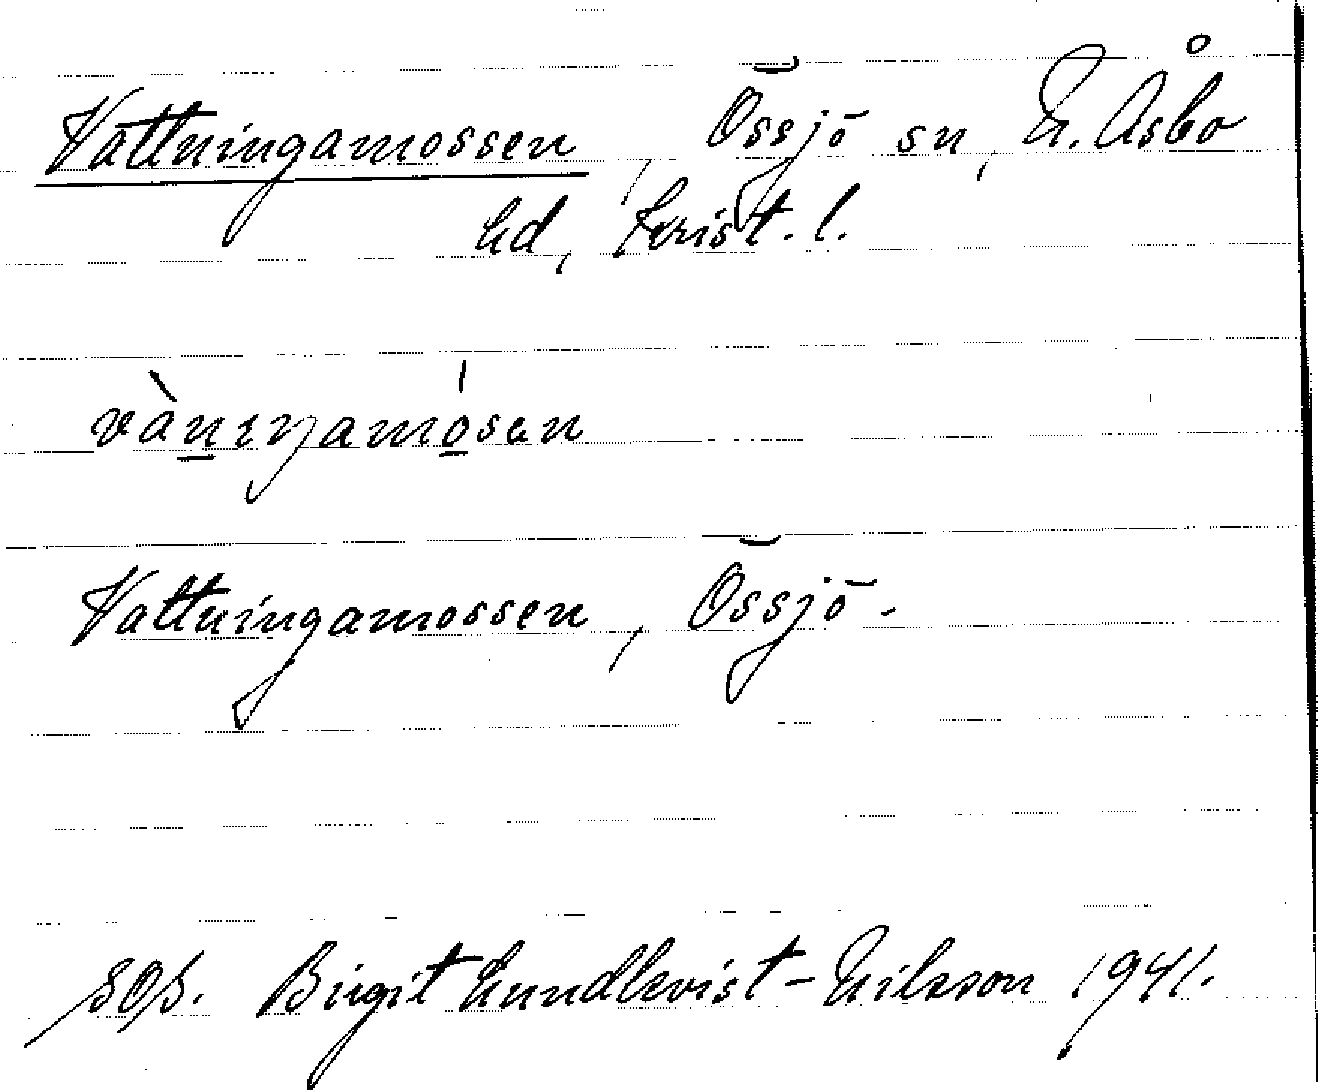 Vattningamossen, Össjö sn, N. Åsbo
hd, Krist. l.
vànıŋamósen
Vattningamossen, Össjö.
Birgit Lundkvist-Nilsson 1941.